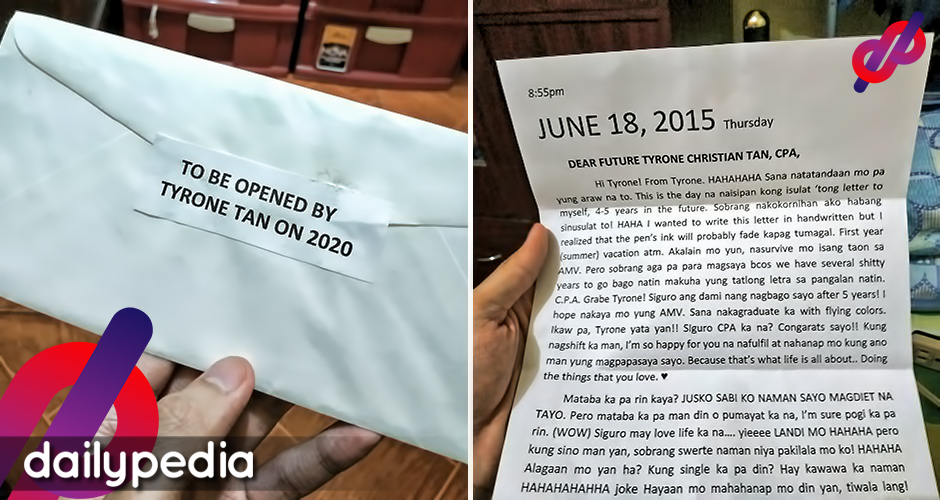 TO BE OPENED BY
TYRONE TAN ON 2020
dailypedia
8:55pm
JUNE 18, 2015 Thursday
DEAR FUTURE TYRONE CHRISTIAN TAN, CPA,
Hi Tyrone! From Tyrone. HAHAHAHA Sana natatandaan mo pa
yung araw na to. This is the day na naisipan kong isulat 'tong letter to
myself, 4-5 years in the future. Sobrang nakokornihan ako habang
sinusulat to! HAHA I wanted to write this letter in handwritten but I
realized that the pen's ink will probably fade kapag tumagal. First year
(summer) vacation atm. Akalain mo yun, nasurvive mo isang taon sa
AMV. Pero sobrang aga pa para magsaya bcos we have several shitty
years to go bago natin makuha yung tatlong letra sa pangalan natin.
C.P.A. Grabe Tyrone! Siguro ang dami nang nagbago sayo after 5 years! I
hope nakaya mo yung AMV. Sana nakagraduate ka with flying colors.
Ikaw pa, Tyrone yata yan!! Siguro CPA ka na? Congrats sayo!! Kung
nagshift ka man, I'm so happy for you na nafulfil at nahanap mo kung ano
man yung magpapasaya sayo. Because that's what life is all about.. Doing
the things that you love. ♥
Mataba ka pa rin kaya? JUSKO SABI KO NAMAN SAYO MAGDIET NA
TAYO. Pero mataba ka pa man din o pumayat ka na, I'm sure pogi ka pa
rin. (WOW) Siguro may love life ka na.... yieeee LANDI MO HAHAHA pero
kung sino man yan, sobrang swerte naman niya pakilala mo ko! HAHAHA
Alagaan mo yan ha? Kung single ka pa din? Hay kawawa ka naman
HAHAHAHAHHA joke Hayaan mo mahahanap mo din yan, tiwala lang!